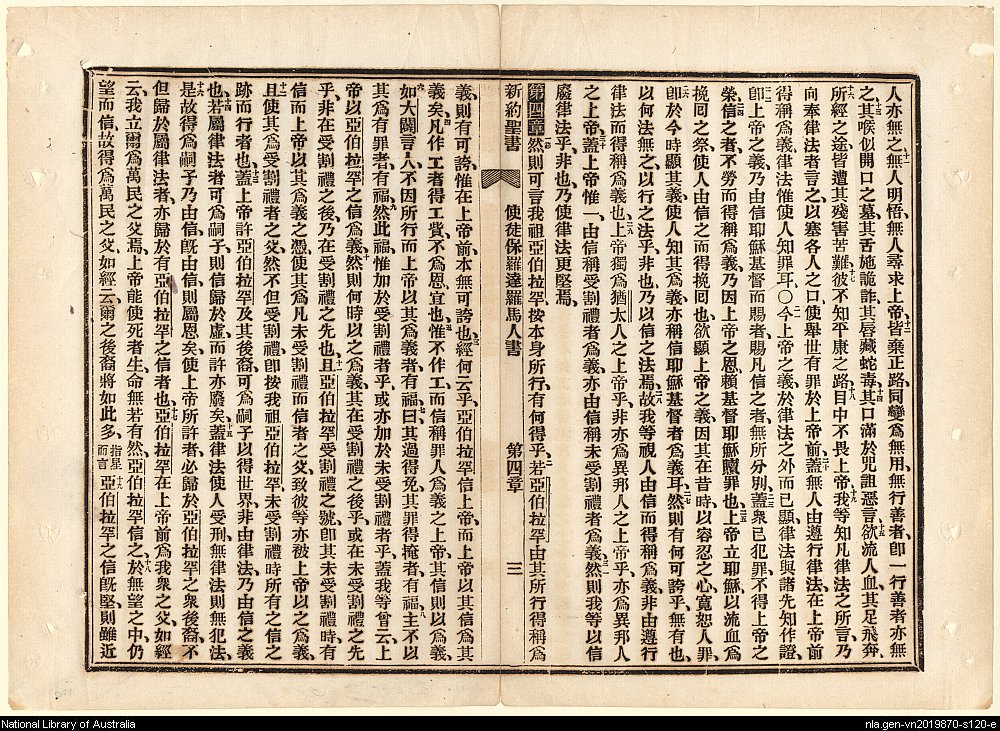 人亦無之無人明悟、無人尋求上帝、皆棄正路同變爲無用、無行善者、卽一行善者亦無
之、其喉似開口之墓、其舌施詭詐、其唇藏蛇毒、其口滿於咒詛惡言、欲流人血其足飛奔、
所經之途皆遭其殘害苦難、彼不知平康之路、目中不畏上帝、我等知凡律法之所言、乃
向奉律法者言之、以塞各人之口、使舉世有罪於上帝前、蓋無人由遵行律法在上帝前
得稱爲義、律法惟使人知罪耳、〇今上帝之義於律法之外而已顯、律法與諸先知作證、
卽上帝之義乃由信耶穌基督而賜者、賜凡信之者、無所分別、蓋衆已犯罪不得上帝之
榮、信之者不勞而得稱爲義、乃因上帝之恩賴基督耶穌贖罪也、上帝立耶穌以流血爲
挽回之祭、使人由信之而得挽回也、欲顯上帝之義、因其在昔時以容忍之心寬恕人罪、
卽於今時顯其義、使人知其爲義、亦稱信耶穌基督者爲義耳、然則有何可誇乎、無有也、
以何法無之、以行之法乎、非也、乃以信之法焉、故我等視人由信而得稱爲義、非由遵行
律法而得稱爲義也、上帝獨爲猶太人之上帝乎、非亦爲異邦人之上帝乎、亦爲異邦人
之上帝、蓋上帝惟一、由信稱受割禮者爲義、亦由信稱未受割禮者爲義、然則我等以信
廢律法乎、非也、乃使律法更堅焉、
第四章 然則可言我祖亞伯拉罕按本身所行有何得乎、若亞伯拉罕由其所行得稱爲
新約聖書 使徒保羅達羅馬人書 第四章 三
義、則有可誇、惟在上帝前本無可誇也、經何云乎、亞伯拉罕信上帝、而上帝以其信爲其
義矣、凡作工者得工貲、不爲恩、宜也、惟不作工而信稱罪人爲義之上帝、其信則以爲義、
如大闢言人不因所行而上帝以其爲義者有福、曰、其過得免、其罪得掩者有福、主不以
其爲有罪者有福、然此福惟加於受割禮者乎、或亦加於未受割禮者乎、蓋我等嘗云上
帝以亞伯拉罕之信爲義、然則何時以之爲義、其在受割禮之後乎、或在未受割禮之先
乎、非在受割禮之後、乃在受割禮之先也、且亞伯拉罕受割禮之號、卽其未受割禮時、有
信而上帝以其爲義之憑、使其爲凡未受割禮而信者之父、致彼等亦被上帝以之爲義、
且使其爲受割禮者之父、然不但受割禮、卽按我祖亞伯拉罕未受割禮時所有之信之
跡而行者也、蓋上帝許亞伯拉罕及其後裔、可爲嗣子以得世界、非由律法、乃由信之義
也、若屬律法者可爲嗣子、則信歸於虛、而許亦廢矣、蓋律法使人受刑、無律法則無犯法、
是故得爲嗣子乃由信、旣由信則屬恩矣、使上帝所許者、必歸於亞伯拉罕之衆後裔、不
但歸於屬律法者、亦歸於有亞伯拉罕之信者也、亞伯拉罕在上帝前爲我衆之父、如經
云、我立爾爲萬民之父焉、上帝能使死者生、命無若有然、亞伯拉罕信之、於無望之中、仍
望而信、故得爲萬民之父、如經云、爾之後裔將如此多、指星而言 亞伯拉罕之信旣堅、則雖近
National Library of Australia
nla.gen-vn2019870-s120-e